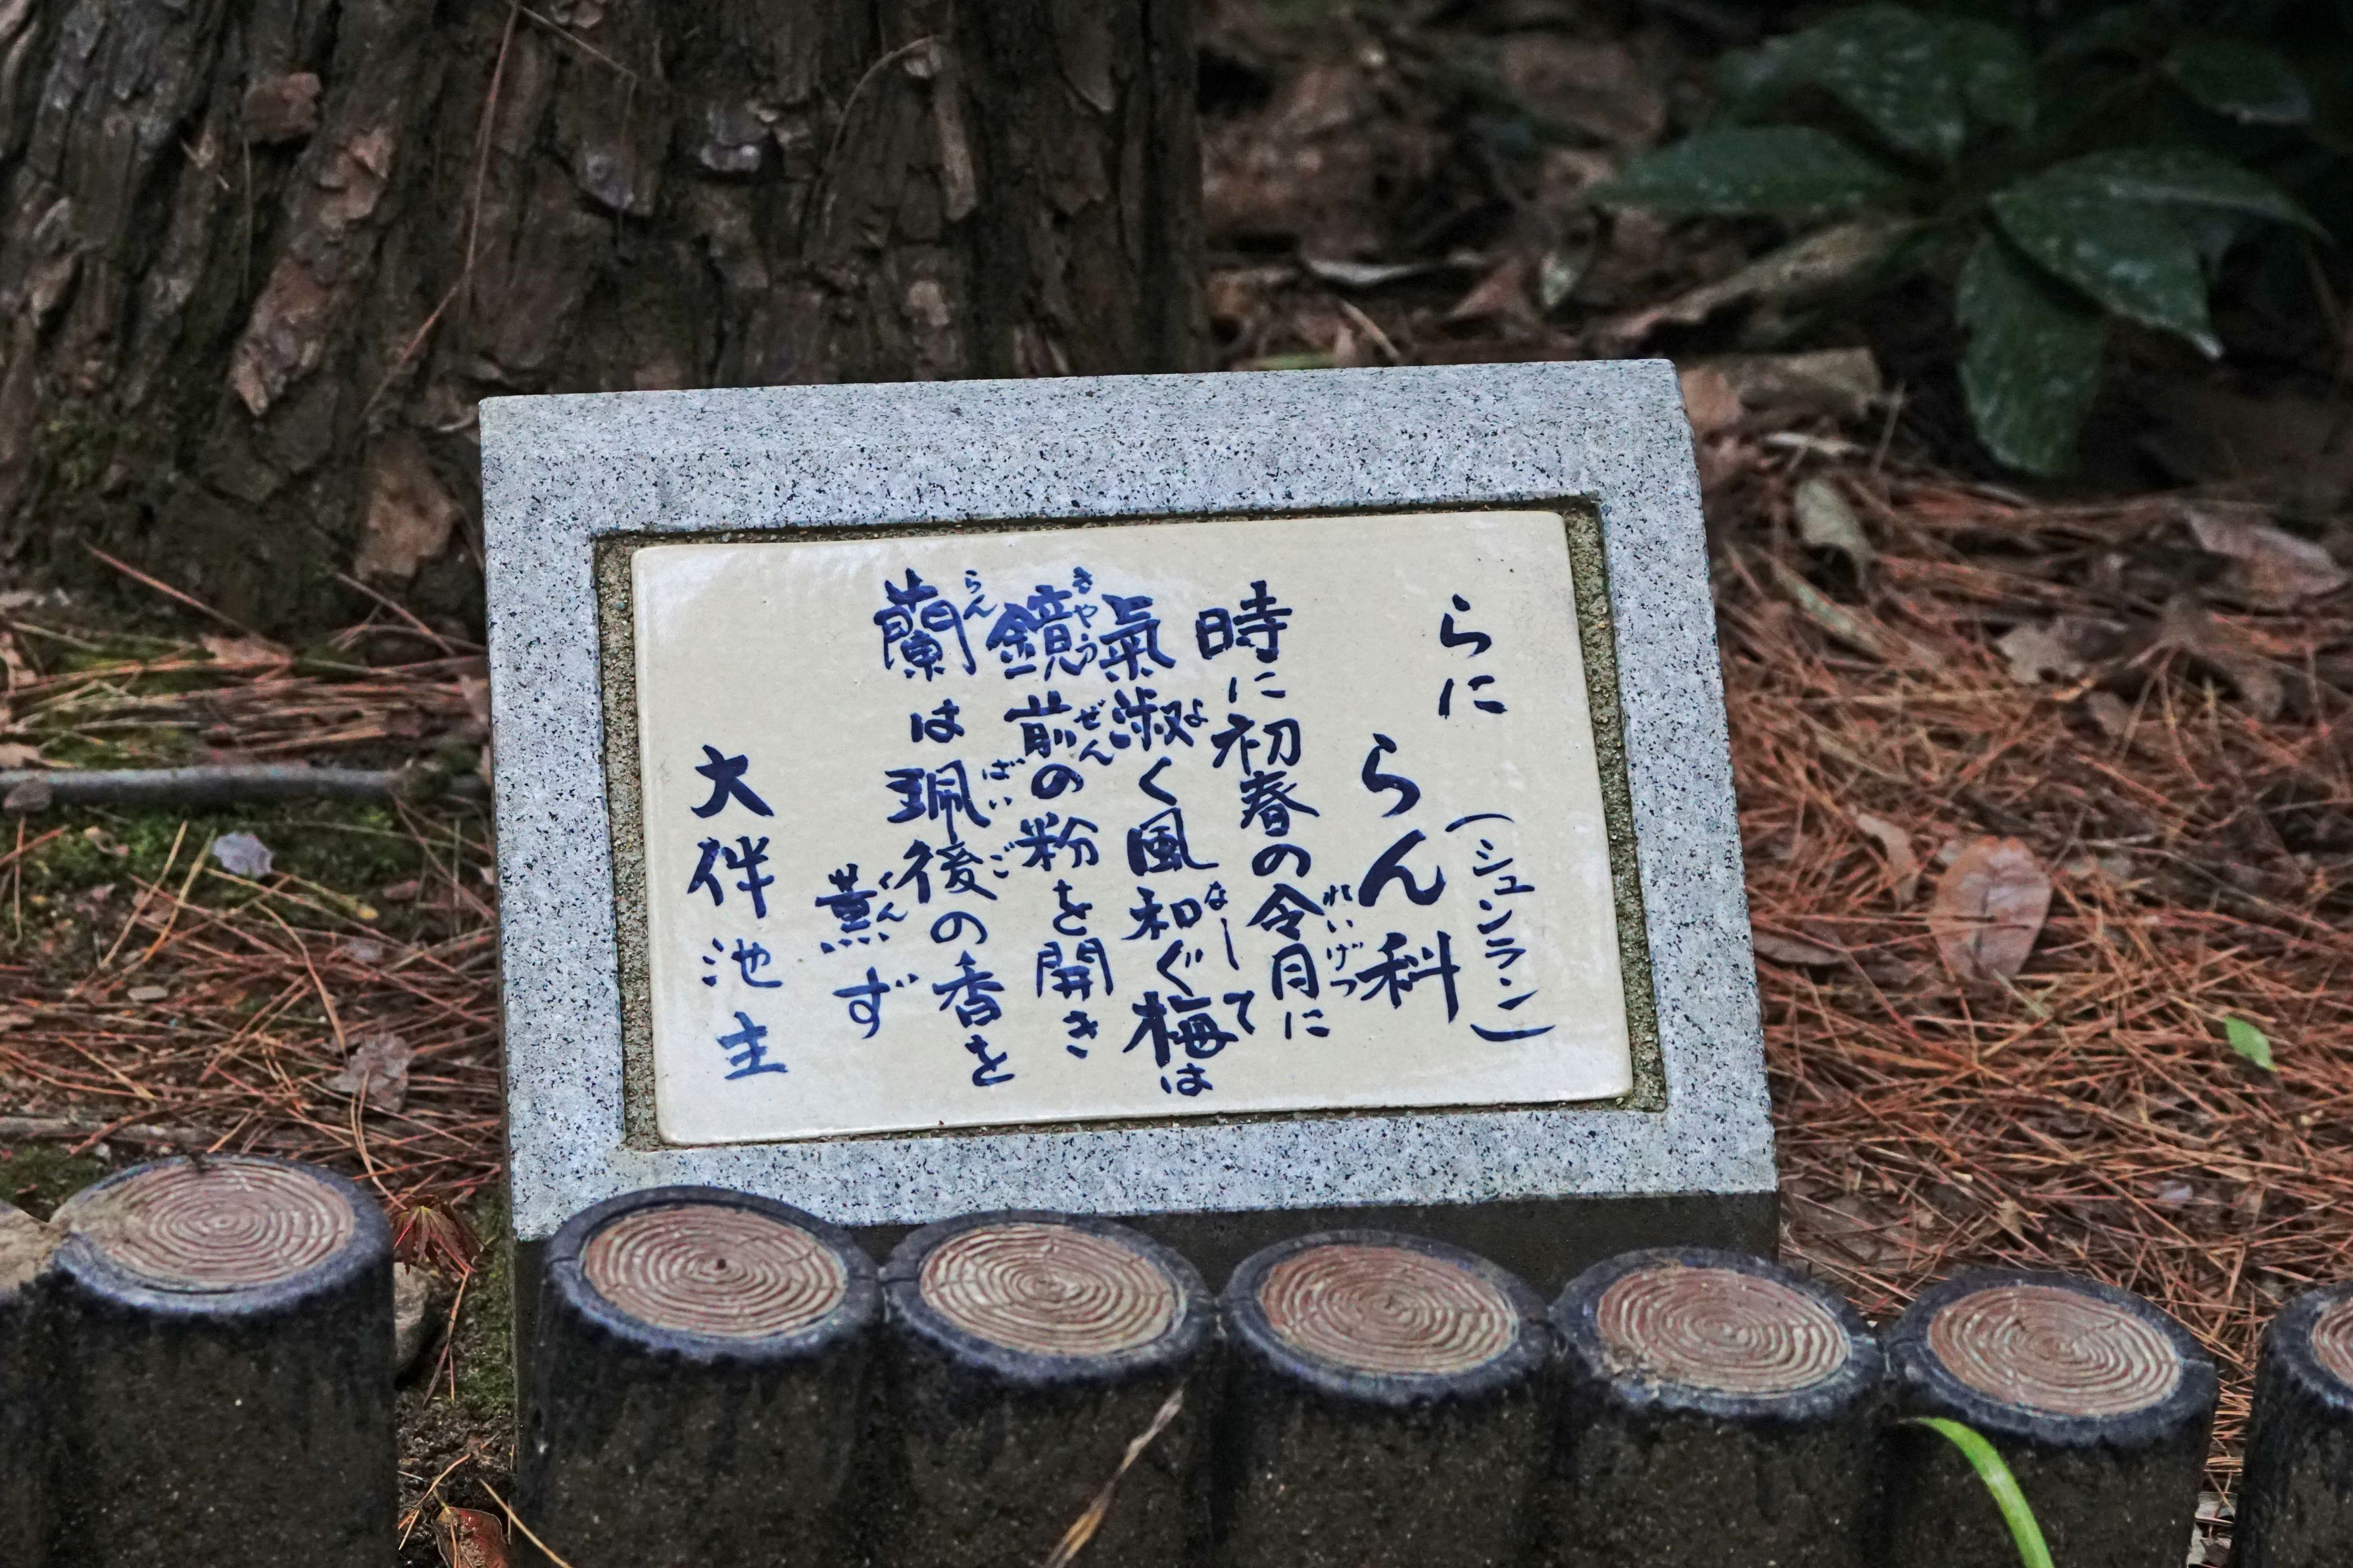 らに
らん科
(シュンラン)
時に初春の令月に
れいげつ
氣淑く風和ぐ梅は
よ なーして
鏡前の粉を開き
きやう ぜん
蘭は珮後の香を
らん ばい ご
薫ず
くん
大伴池主